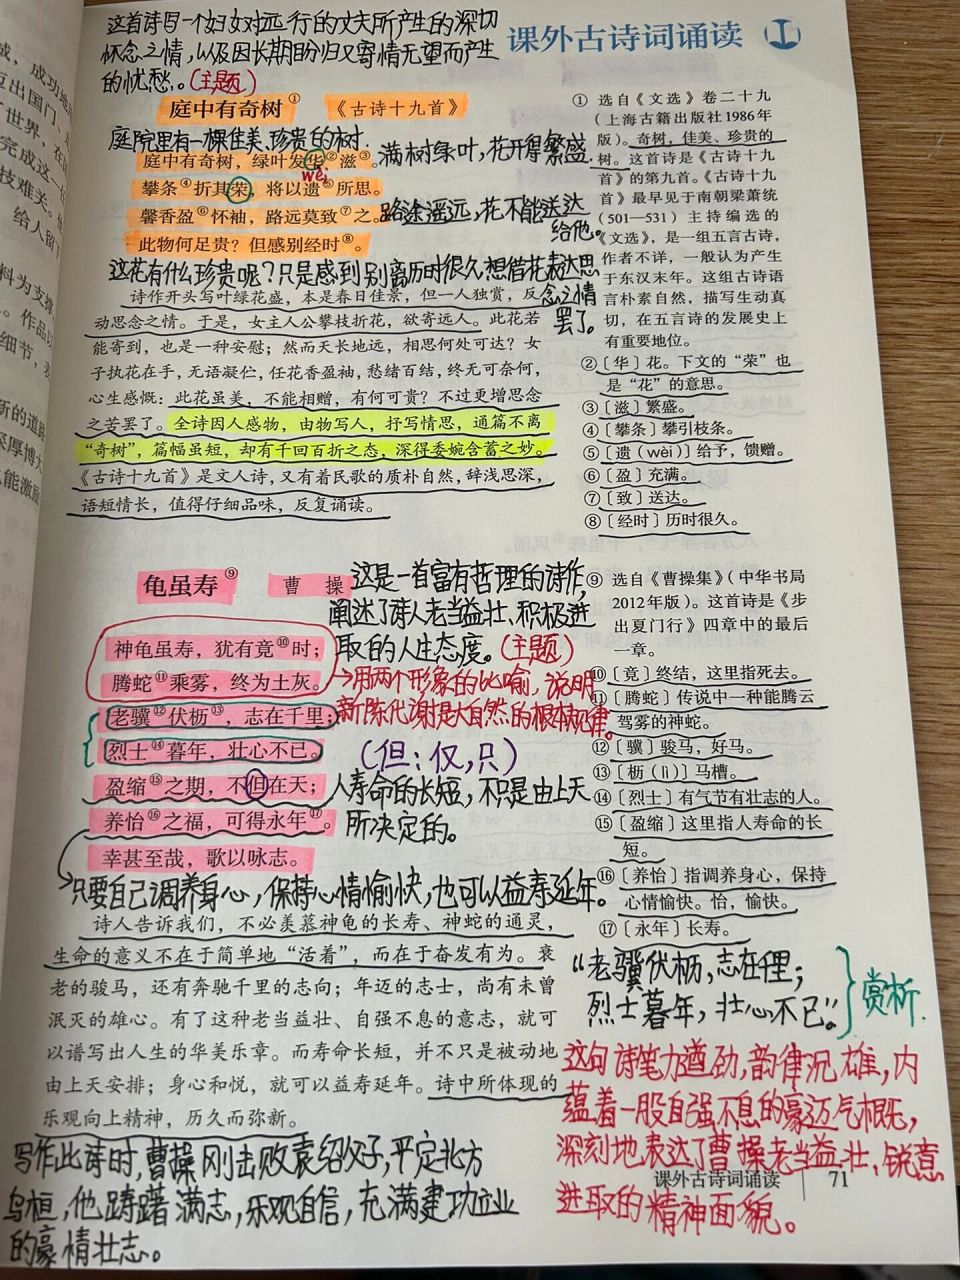 这首诗写一个妇女对远行的丈夫所产生的深切
怀念之情，以及因长期盼归又寄情无望而产生
的忧愁。(主题)
课外古诗词诵读
庭中有奇树① 《古诗十九首》
庭院里有一棵佳美、珍贵的树.
庭中有奇树，绿叶发华②滋③。
满树绿叶，花开得繁盛.
wèi
攀条④折其荣，将以遗⑤所思。
馨香盈⑥怀袖，路远莫致⑦之。
路途遥远，花不能送达
给他。
此物何足贵？但感别经时⑧。
这花有什么珍贵呢？只是感到别离历时很久想借花表达思
念之情
罢了。
诗作开头写叶绿花盛，本是春日佳景，但一人独赏，反
动思念之情。于是，女主人公攀枝折花，欲寄远人。此花若
能寄到，也是一种安慰；然而天长地远，相思何处可达？女
子执花在手，无语凝伫，任花香盈袖，愁绪百结，终无可奈何，
心生感慨：此花虽美，不能相赠，有何可贵？不过更增思念
之苦罢了。全诗因人感物，由物写人，抒写情思，通篇不离
“奇树”，篇幅虽短，却有千回百折之态，深得委婉含蓄之妙。
《古诗十九首》是文人诗，又有着民歌的质朴自然，辞浅思深，
语短情长，值得仔细品味，反复诵读。
① 选自《文选》卷二十九
（上海古籍出版社1986年
版）。奇树，佳美、珍贵的
树。这首诗是《古诗十九
首》的第九首。《古诗十九
首》最早见于南朝梁萧统
（501—531）主持编选的
《文选》，是一组五言古诗，
作者不详，一般认为产生
于东汉末年。这组古诗语
言朴素自然，描写生动真
切，在五言诗的发展史上
有重要地位。
②〔华〕花。下文的“荣”也
是“花”的意思。
③〔滋〕繁盛。
④〔攀条〕攀引枝条。
⑤〔遗（wèi）〕给予，馈赠。
⑥〔盈〕充满。
⑦〔致〕送达。
⑧〔经时〕历时很久。
龟虽寿⑨ 曹操
这是一首富有哲理的诗作,
阐述了诗人老当益壮、积极进
取的人生态度。(主题)
神龟虽寿，犹有竟⑩时；
腾蛇⑪乘雾，终为土灰。
→用两个形象的比喻，说明
新陈代谢是大自然的根本规律。
老骥⑫伏枥⑬，志在千里；
烈士⑭暮年，壮心不已。
(但：仅，只)
盈缩⑮之期，不但在天；
人寿命的长短，不只是由上天
所决定的。
养怡⑯之福，可得永年⑰。
幸甚至哉，歌以咏志。
只要自己调养身心，保持心情愉快，也可以益寿延年。
诗人告诉我们，不必羡慕神龟的长寿、神蛇的通灵，
生命的意义不在于简单地“活着”，而在于奋发有为。衰
老的骏马，还有奔驰千里的志向；年迈的志士，尚有未曾
泯灭的雄心。有了这种老当益壮、自强不息的意志，就可
以谱写出人生的华美乐章。而寿命长短，并不只是被动地
由上天安排；身心和悦，就可以益寿延年。诗中所体现的
乐观向上精神，历久而弥新。
⑨ 选自《曹操集》（中华书局
2012年版）。这首诗是《步
出夏门行》四章中的最后
一章。
⑩〔竟〕终结，这里指死去。
⑪〔腾蛇〕传说中一种能腾云
驾雾的神蛇。
⑫〔骥〕骏马，好马。
⑬〔枥（lì）〕马槽。
⑭〔烈士〕有气节有壮志的人。
⑮〔盈缩〕这里指人寿命的长
短。
⑯〔养怡〕指调养身心，保持
心情愉快。怡，愉快。
⑰〔永年〕长寿。
“老骥伏枥，志在千里；
烈士暮年，壮心不已”。
赏析.
这句诗笔力遒劲，韵律沉雄，内
蕴着一股自强不息的豪迈气概，
深刻地表达了曹操老当益壮、锐意
进取的精神面貌。
写作此诗时，曹操刚击败袁绍父子，平定北方
乌桓，他踌躇满志，乐观自信，充满建功立业
的豪情壮志。
课外古诗词诵读 71